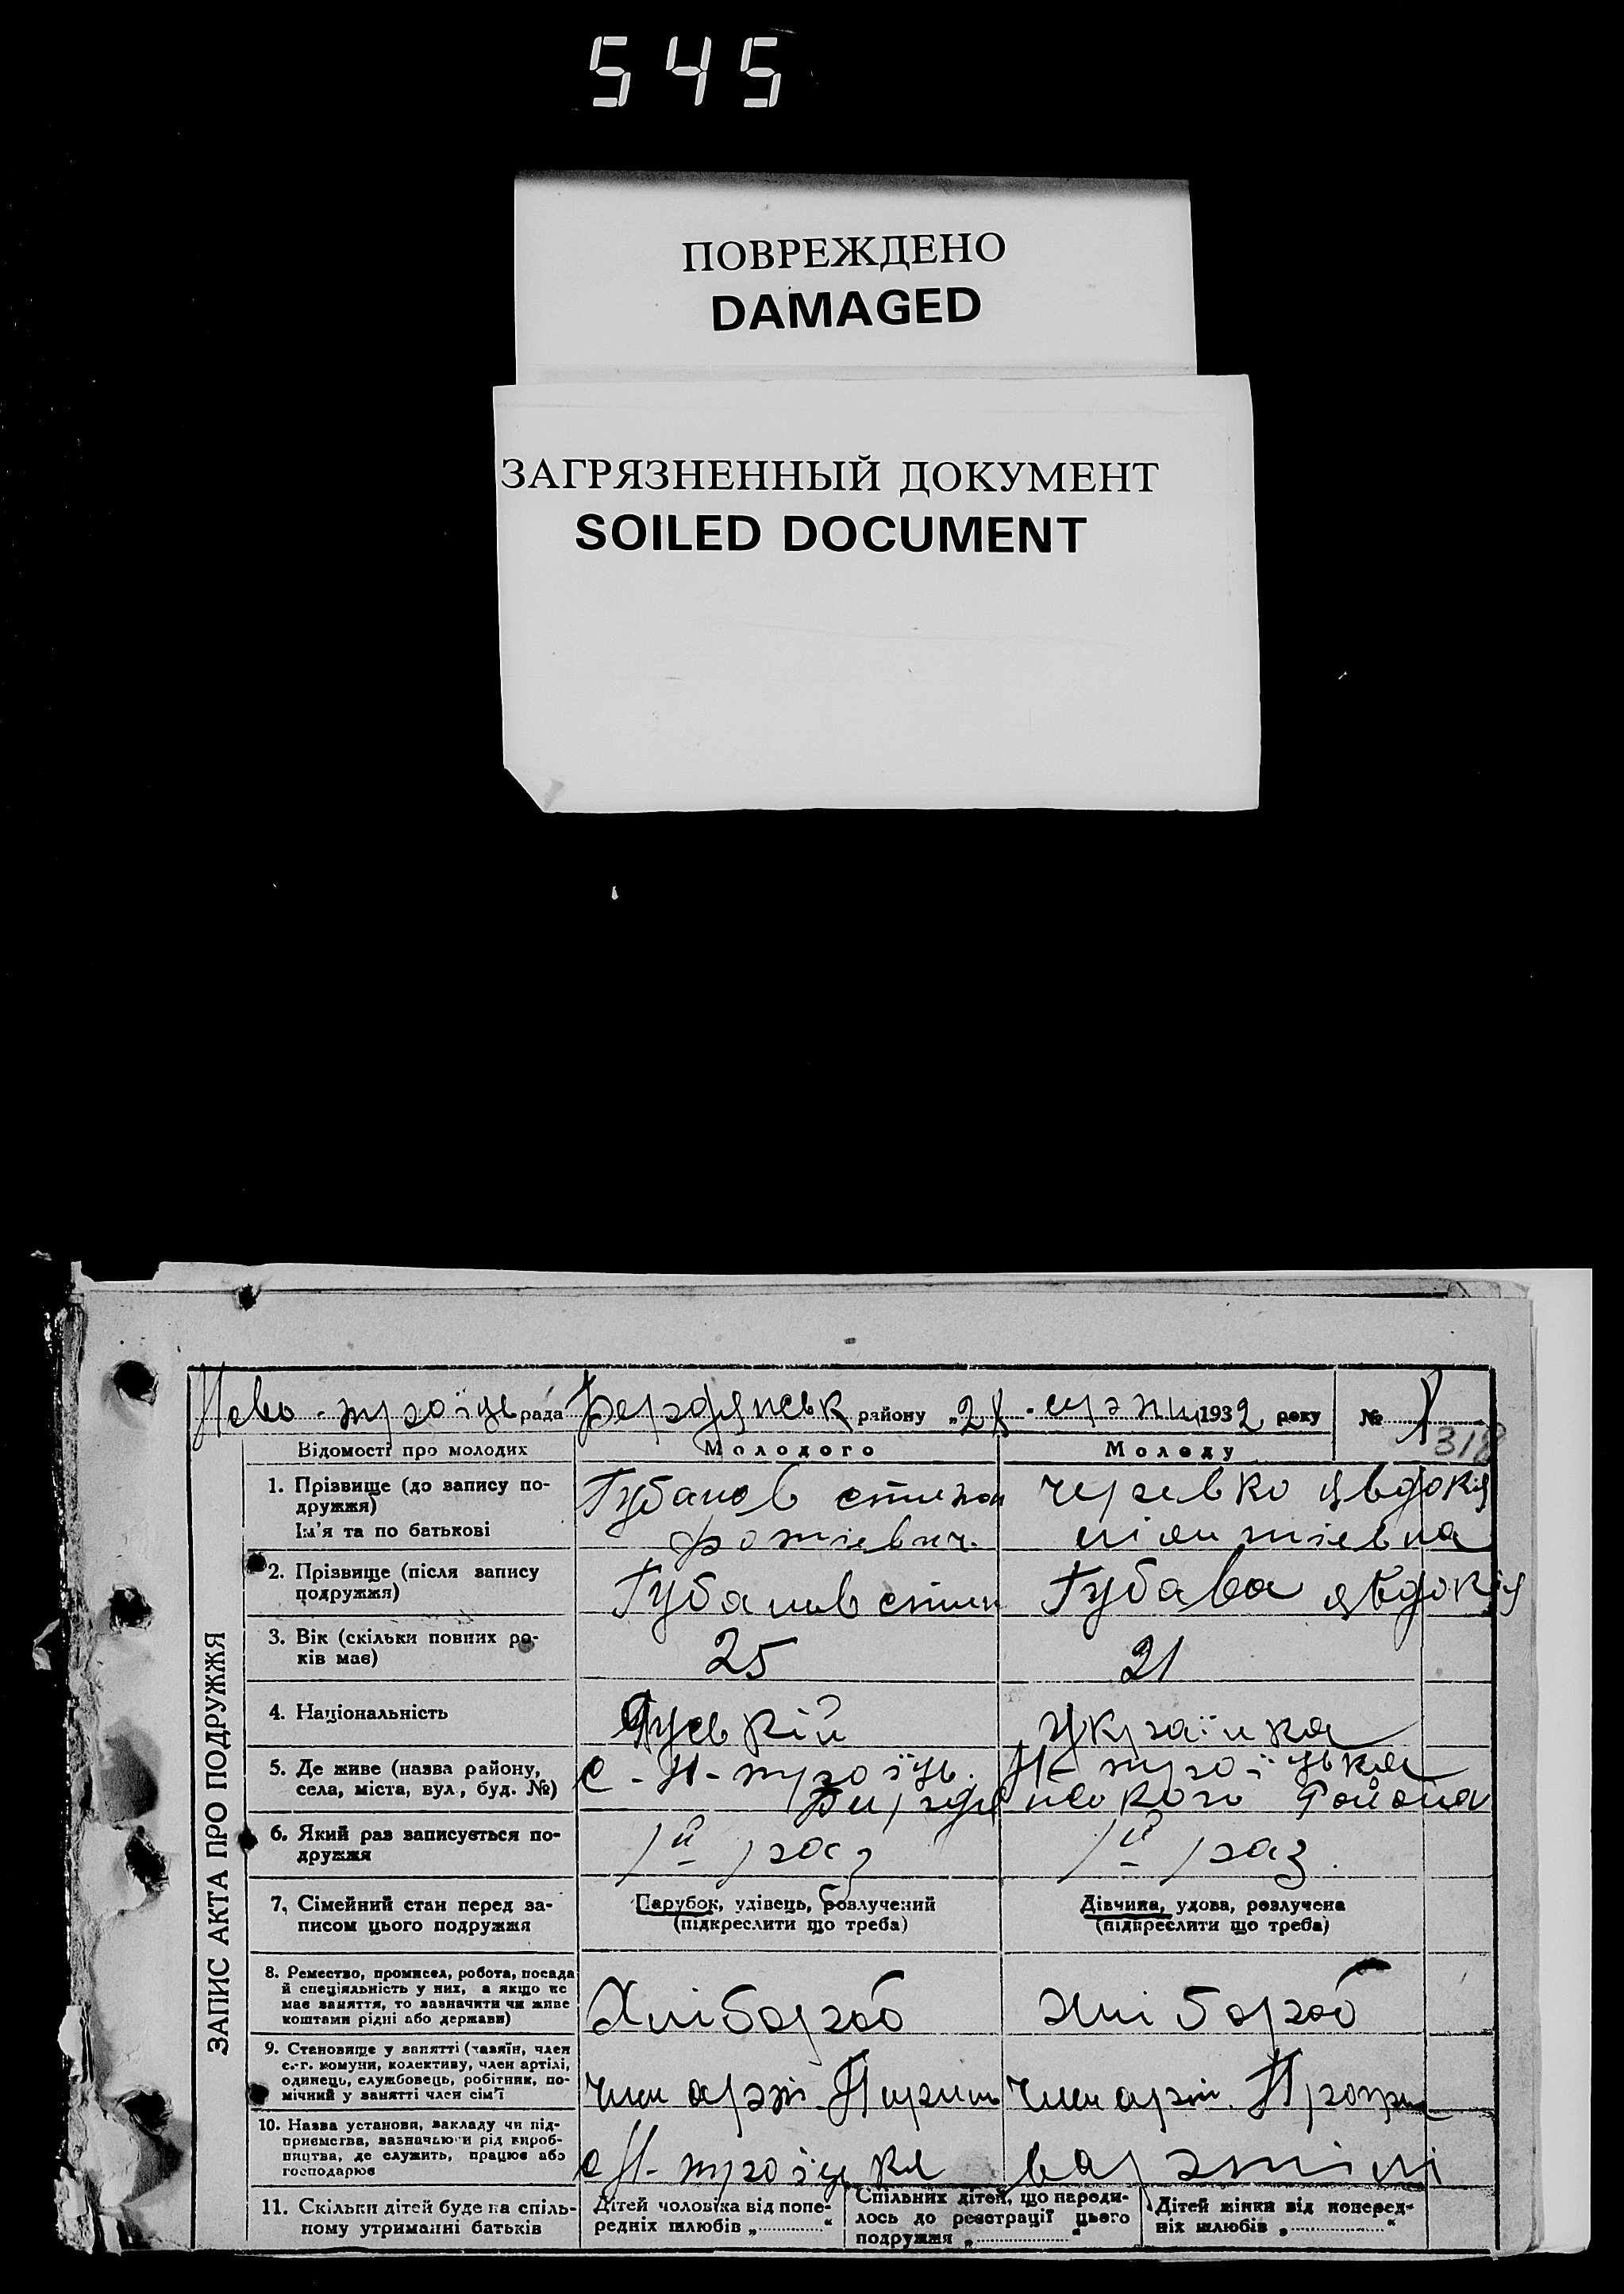 545
ПОВРЕЖДЕНО
DAMAGED
ЗАГРЯЗНЕННЫЙ ДОКУМЕНТ
SOILED DOCUMENT
Ново-троїць рада Бердянськ району „2 193 2 року №
318
ЗАПИС АКТА ПРО ПОДРУЖЖЯ
Відомості про молодих Молодого Молоду
1. Прізвище (до запису по-
дружжя)
Ім'я та по батькові
Губанов степан
фотіевич.
черевко явдокія
2. Прізвище (після запису
подружжя)
Губанов степан
Губава явдокія
3. Вік (скільки повних ро-
ків має)
25
21
4. Національність
Руський
українка
5. Де живе (назва району,
села, міста, вул., буд. №)
с-Н-троїць. Н-троїцька
Бердянського Района
6. Який раз записується по-
дружжя
1й раз
1й раз.
7. Сімейний стан перед за-
писом цього подружжя
Парубок, удівець, розлучений
(підкреслити що треба)
Дівчина, удова, розлучена
(підкреслити що треба)
8. Ремество, промисел, робота, посада
й спеціяльність у них, а якщо не
має заняття, то зазначити чи живе
коштами рідні або держави)
Хлібороб
хлібороб
9. Становище у занятті (хазяїн, член
с.-г. комуни, колективу, член артілі,
одинець, службовець, робітник, по-
мічний у занятті член сім'ї
член арті.
член арті.
10. Назва установи, закладу чи під-
приємства, зазначаючи рід вироб-
ництва, де служить, працює або
господарює
с Н-троїцька в артілі
11. Скільки дітей буде на спіль-
ному утриманні батьків
Дітей чоловіка від попе-
редніх шлюбів „ “
Спільних дітей, що народи-
лось до реєстрації цього
подружжя „ “
Дітей жінки від поперед-
ніх шлюбів „ “